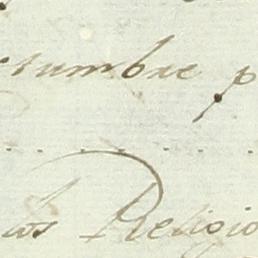 tumbre p
los Religio